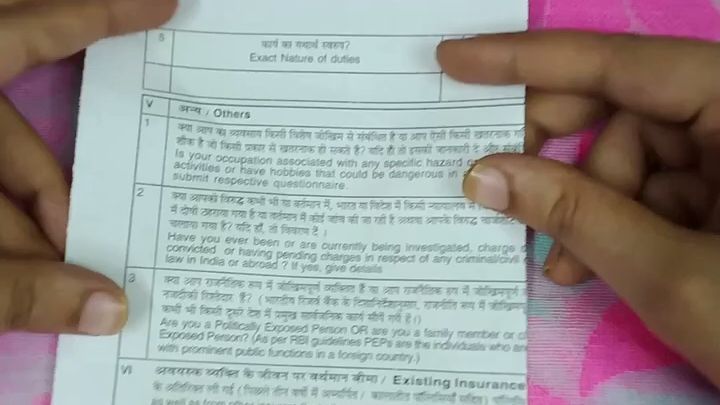 5 कार्य का यथार्थ स्वरूप?
Exact Nature of duties
V अन्य / Others
1 क्या आप का व्यवसाय किसी विशेष जोखिम से संबंधित है या आप ऐसी किसी खतरनाक
शौक है जो किसी प्रकार से खतरनाक हो सकते है? यदि हाँ तो इसकी जानकारी दे और
Is your occupation associated with any specific hazard
activities or have hobbies that could be dangerous in
submit respective questionnaire.
2 क्या आपके विरुद्ध कभी भी या वर्तमान में, भारत या विदेश में किसी न्यायालय में
में दोषी ठहराया गया है या वर्तमान में कोई जांच की जा रही है अथवा आपके विरुद्ध
चलाया गया है? यदि हाँ, तो विवरण दें ।
Have you ever been or are currently being investigated, charge
convicted or having pending charges in respect of any criminal/civil
law in India or abroad ? If yes, give details
3 क्या आप राजनैतिक रूप में जोखिमपूर्ण व्यक्ति हैं या आप राजनैतिक रूप में जोखिमपूर्ण
नजदीकी रिश्तेदार हैं? ( भारतीय रिजर्व बैंक के दिशानिर्देशानुसार, राजनीति रूप में
कभी भी किसी दूसरे देश में प्रमुख सार्वजनिक कार्य सौंपे गये है।)
Are you a Politically Exposed Person OR are you a family member or
Exposed Person? (As per RBI guidelines PEPs are the individuals who
with prominent public functions in a foreign country.)
VI अवयस्क व्यक्ति के जीवन पर वर्तमान बीमा / Existing Insurance
के अतिरिक्त ली गई ( पिछले तीन वर्षों में अभ्यर्पित / कालातीत पॉलिसियाँ सहित)